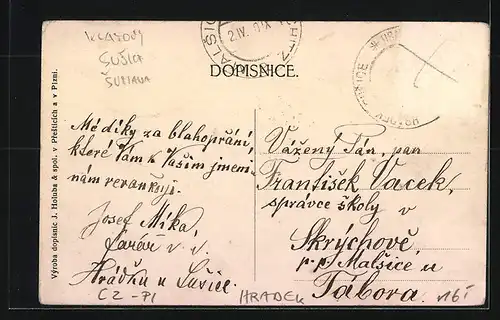 KLATOVY
SUŠICE
ŠUMAVA
DOPISNICE.
Mé díky za blahopřání,
které Vám k Vašim jmeni-
nám revankuji.
Josef Míka,
farář v. v.
Hrádku u Sušice.
Vážený Pán, pan
František Vacek,
správce školy
v
Skrýchově
p. p. Malšice u
Tábora.
CZ-PI
HRADEK
Výroba dopisnic J. Holuba a spol. v Přešticích a v Plzni.